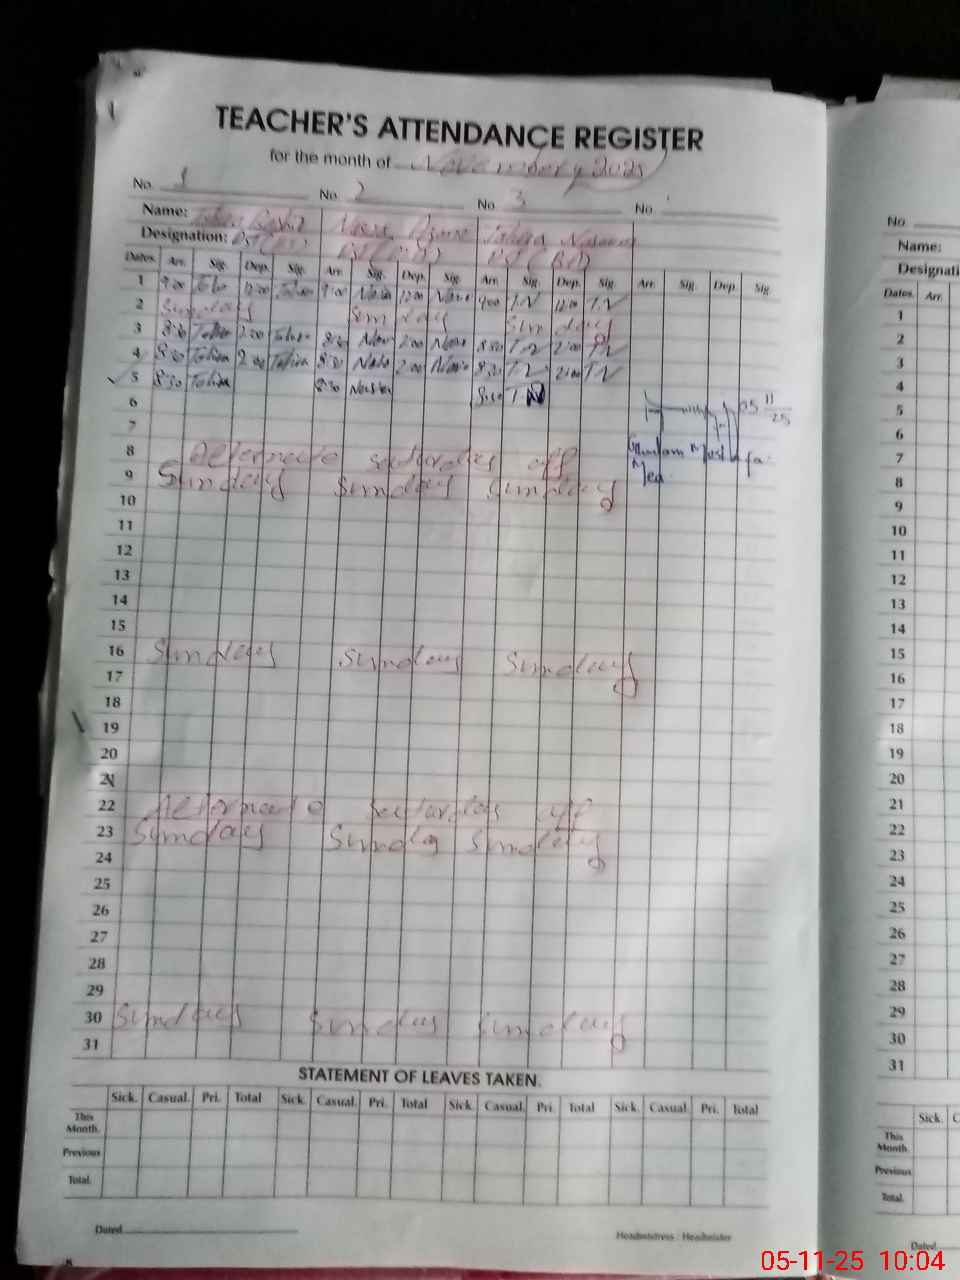 TEACHER'S ATTENDANCE REGISTER
for the month of November, 2025
No. 1 No. 2 No. 3 No.
Name: Tahira Nasreen
Designation: PST (BI)
Dates. Arr. Sig. Dep. Sig. Arr. Sig. Dep. Sig. Arr. Sig. Dep. Sig. Arr. Sig. Dep. Sig.
1 9:00 12:00 9:00 12:00 9:00 T.N 12:00 T.N
2 Sunday Sunday Sunday
3 8:30 2:00 8:30 2:00 8:30 T.N 2:00 T.N
4 8:30 Tahira 2:00 Tahira 8:30 2:00 8:30 T.N 2:00 T.N
5 8:30 Tahira 8:30 8:30 T.N 05 11/25
6
7 Mea
8 Alternate saturday off
9 Sunday Sunday Sunday
10
11
12
13
14
15
16 Sunday Sunday Sunday
17
18
19
20
21
22 Alternate saturday off
23 Sunday Sunday Sunday
24
25
26
27
28
29
30 Sunday Sunday Sunday
31
STATEMENT OF LEAVES TAKEN.
Sick. Casual. Pri. Total Sick. Casual. Pri. Total Sick. Casual. Pri. Total Sick. Casual. Pri. Total
This Month.
Previous
Total.
Dated
Headmistress / Headmaster
No
Name:
Dates. Arr
1
2
3
4
5
6
7
8
9
10
11
12
13
14
15
16
17
18
19
20
21
22
23
24
25
26
27
28
29
30
31
Sick.
This Month
Previous
Total.
Dated
05-11-25 10:04